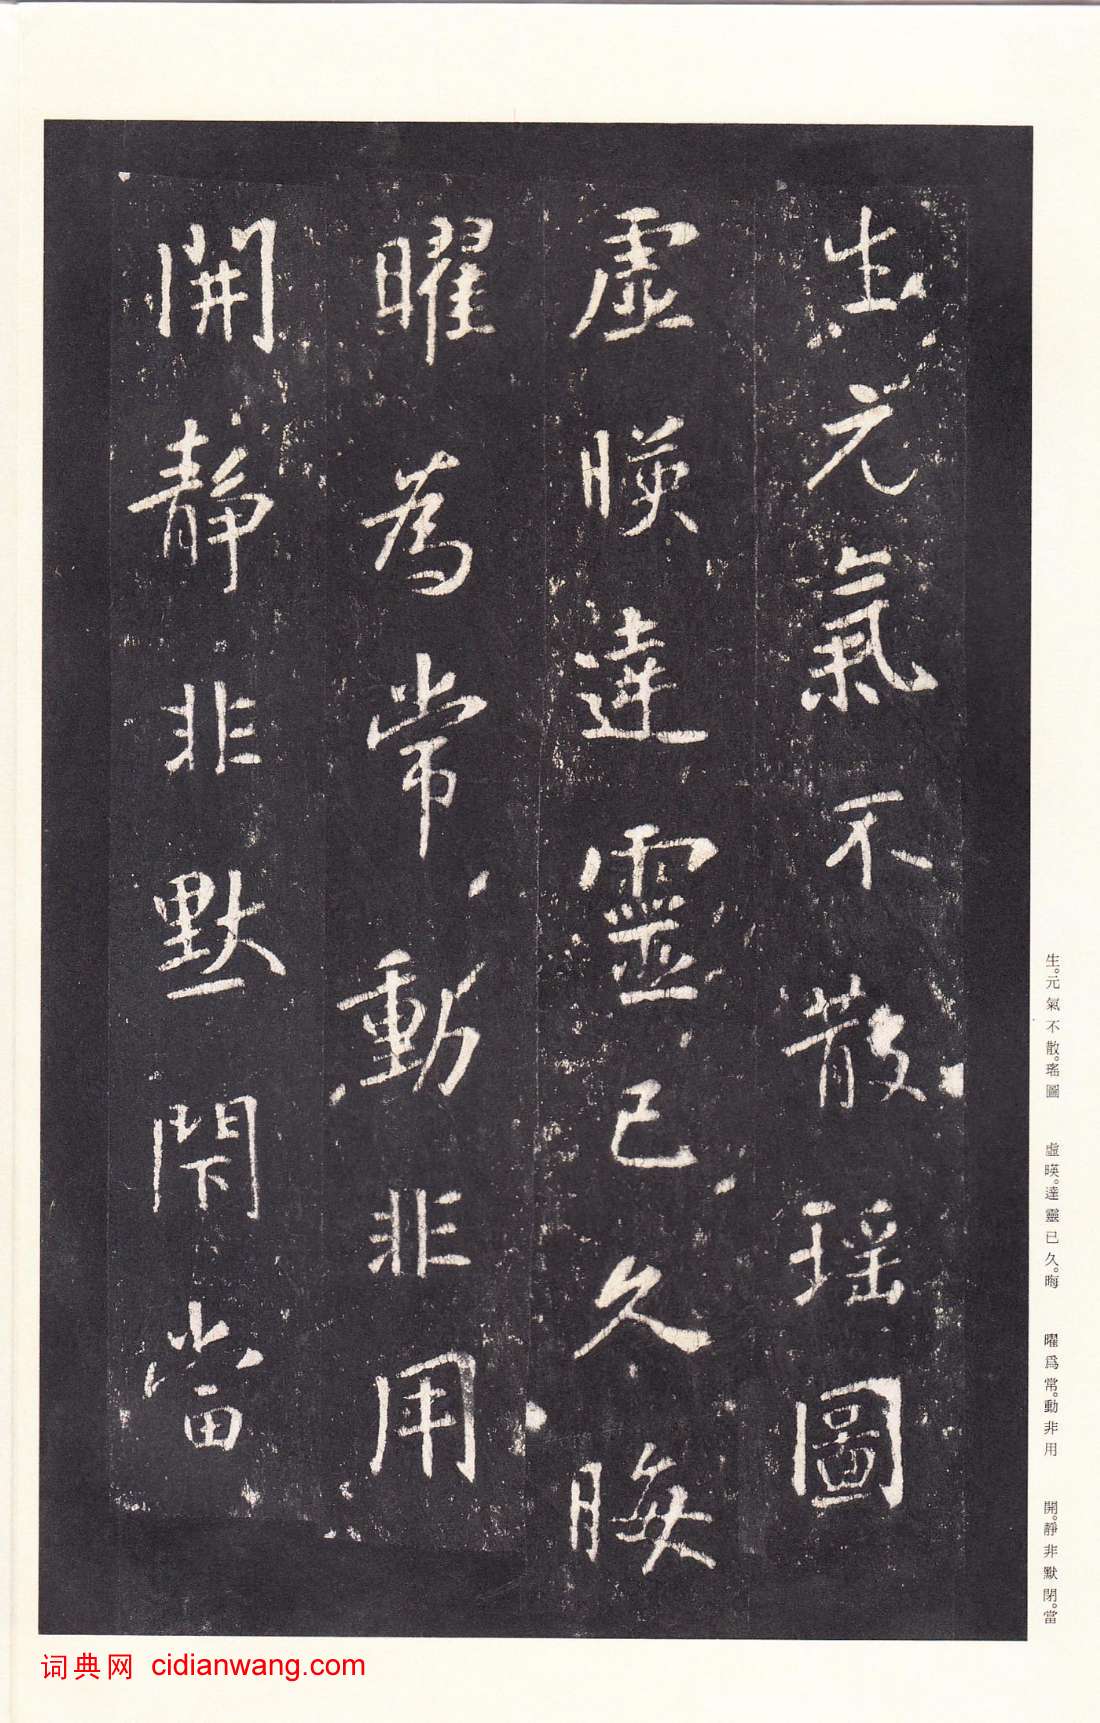 生元氣不散瑶圖
虛暎達靈已久晦
曜為常動非用
開靜非默閇當
生。元氣不散。瑤圖　虛暎。達靈已久。晦　曜爲常。動非用　開。靜非默閉。當
词典网 cidianwang.com